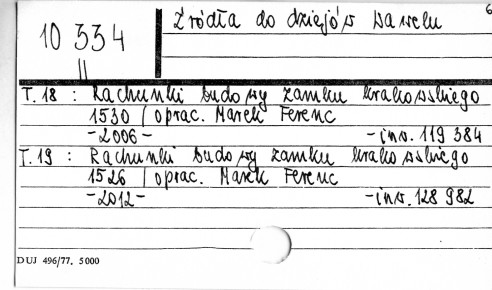 6
Źródła do dziejów Wawelu
10 334
II
T. 18 : Rachunki budowy zamku krakowskiego
1530 / oprac. Marek Ferenc
-2006- -inw. 119 384
T. 19 : Rachunki budowy zamku krakowskiego
1526 / oprac. Marek Ferenc
-2012- -inw. 128 982
DUJ 496/77. 5000